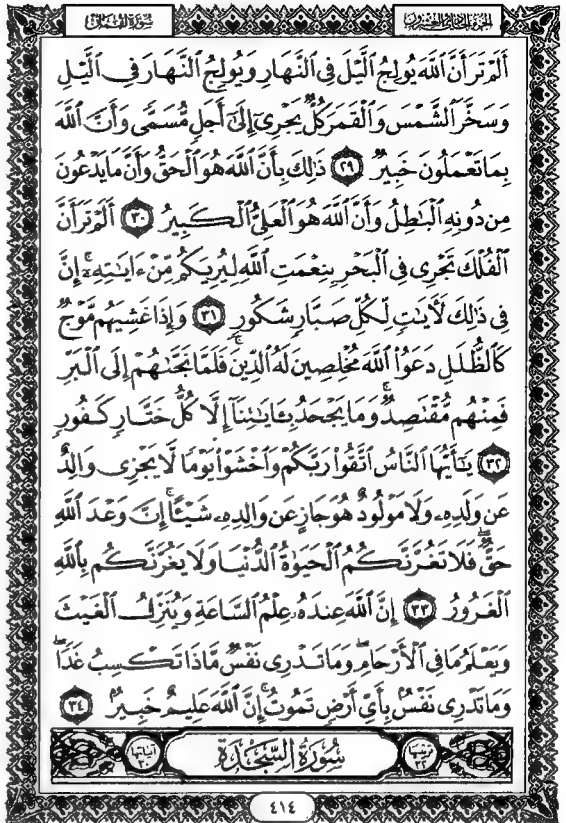 سُورَةُ لُقْمَان
الجُزءُ الحَادِي وَالعِشرُونَ
أَلَمْ تَرَ أَنَّ ٱللَّهَ يُولِجُ ٱلَّيْلَ فِى ٱلنَّهَارِ وَيُولِجُ ٱلنَّهَارَ فِى ٱلَّيْلِ
وَسَخَّرَ ٱلشَّمْسَ وَٱلْقَمَرَ كُلٌّ يَجْرِىٓ إِلَىٰٓ أَجَلٍ مُّسَمًّى وَأَنَّ ٱللَّهَ
بِمَا تَعْمَلُونَ خَبِيرٌ ٢٩ ذَٰلِكَ بِأَنَّ ٱللَّهَ هُوَ ٱلْحَقُّ وَأَنَّ مَا يَدْعُونَ
مِن دُونِهِ ٱلْبَٰطِلُ وَأَنَّ ٱللَّهَ هُوَ ٱلْعَلِىُّ ٱلْكَبِيرُ ٣٠ أَلَمْ تَرَ أَنَّ
ٱلْفُلْكَ تَجْرِى فِى ٱلْبَحْرِ بِنِعْمَتِ ٱللَّهِ لِيُرِيَكُم مِّنْ ءَايَٰتِهِۦٓ ۚ إِنَّ
فِى ذَٰلِكَ لَءَايَٰتٍ لِّكُلِّ صَبَّارٍ شَكُورٍ ٣١ وَإِذَا غَشِيَهُم مَّوْجٌ
كَٱلظُّلَلِ دَعَوُا۟ ٱللَّهَ مُخْلِصِينَ لَهُ ٱلدِّينَ فَلَمَّا نَجَّىٰهُمْ إِلَى ٱلْبَرِّ
فَمِنْهُم مُّقْتَصِدٌ ۚ وَمَا يَجْحَدُ بِـَٔايَٰتِنَآ إِلَّا كُلُّ خَتَّارٍ كَفُورٍ
٣٢ يَٰٓأَيُّهَا ٱلنَّاسُ ٱتَّقُوا۟ رَبَّكُمْ وَٱخْشَوْا۟ يَوْمًا لَّا يَجْزِى وَالِدٌ
عَن وَلَدِهِۦ وَلَا مَوْلُودٌ هُوَ جَازٍ عَن وَالِدِهِۦ شَيْـًٔا ۚ إِنَّ وَعْدَ ٱللَّهِ
حَقٌّ ۖ فَلَا تَغُرَّنَّكُمُ ٱلْحَيَوٰةُ ٱلدُّنْيَا وَلَا يَغُرَّنَّكُم بِٱللَّهِ
ٱلْغَرُورُ ٣٣ إِنَّ ٱللَّهَ عِندَهُۥ عِلْمُ ٱلسَّاعَةِ وَيُنَزِّلُ ٱلْغَيْثَ
وَيَعْلَمُ مَا فِى ٱلْأَرْحَامِ ۖ وَمَا تَدْرِى نَفْسٌ مَّاذَا تَكْسِبُ غَدًا ۖ
وَمَا تَدْرِى نَفْسٌۢ بِأَىِّ أَرْضٍ تَمُوتُ ۚ إِنَّ ٱللَّهَ عَلِيمٌ خَبِيرٌۢ ٣٤
سُورَةُ السَّجْدَة
٤١٤